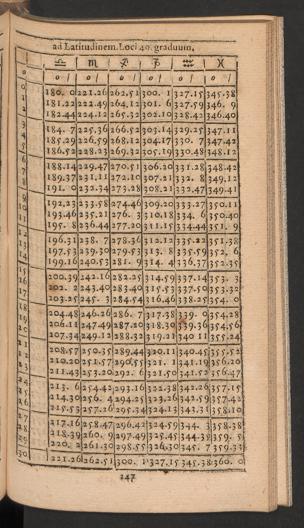 ad Latitudinem Loci 40. graduum.
♎ ♏ ♐ ♑ ♒ ♓
0 180. 0 221.26 262.51 300. 1 327.15 345.38
1 181.22 222.49 264.12 301. 6 327.59 346. 9
2 182.44 224.12 265.32 302.10 328.42 346.40
3 184. 7 225.36 266.52 303.14 329.25 347.11
4 185.29 226.59 268.12 304.17 330. 7 347.42
5 186.52 228.23 269.32 305.19 330.48 348.12
6 188.14 229.47 270.51 306.20 331.28 348.42
7 189.37 231.11 272.10 307.21 332. 8 349.12
8 191. 0 232.34 273.28 308.21 332.47 349.41
9 192.23 233.58 274.46 309.20 333.27 350.11
10 193.46 235.21 276. 3 310.18 334. 6 350.40
11 195. 8 236.44 277.20 311.15 334.44 351. 9
12 196.31 238. 7 278.36 312.12 335.22 351.38
13 197.53 239.30 279.52 313. 8 335.59 352. 6
14 199.16 240.53 281. 9 314. 4 336.37 352.35
15 200.39 242.16 282.25 314.59 337.14 353. 3
16 202. 2 243.40 283.40 315.53 337.50 353.32
17 203.25 245. 3 284.54 316.46 338.25 354. 0
18 204.48 246.26 286. 7 317.38 339. 0 354.28
19 206.11 247.49 287.20 318.30 339.36 354.56
20 207.34 249.12 288.32 319.21 340 11 355.24
21 208.57 250.35 289.44 320.11 340.45 355.52
22 210.20 251.57 290.55 321. 1 341.19 356.20
23 211.43 253.20 292. 6 321.50 341.52 356.47
24 213. 6 254.42 293.16 322.38 342.26 357.15
25 214.30 256. 4 294.25 323.26 342.59 357.42
26 215.53 257.26 295.34 324.13 343.31 358.10
27 217.16 258.47 296.42 324.59 344. 3 358.38
28 218.39 260. 9 297.49 325.45 344.35 359. 5
29 220. 2 261.30 298.55 326.30 345. 7 359.33
30 221.26 262.51 300. 1 327.15 345.38 360. 0
147